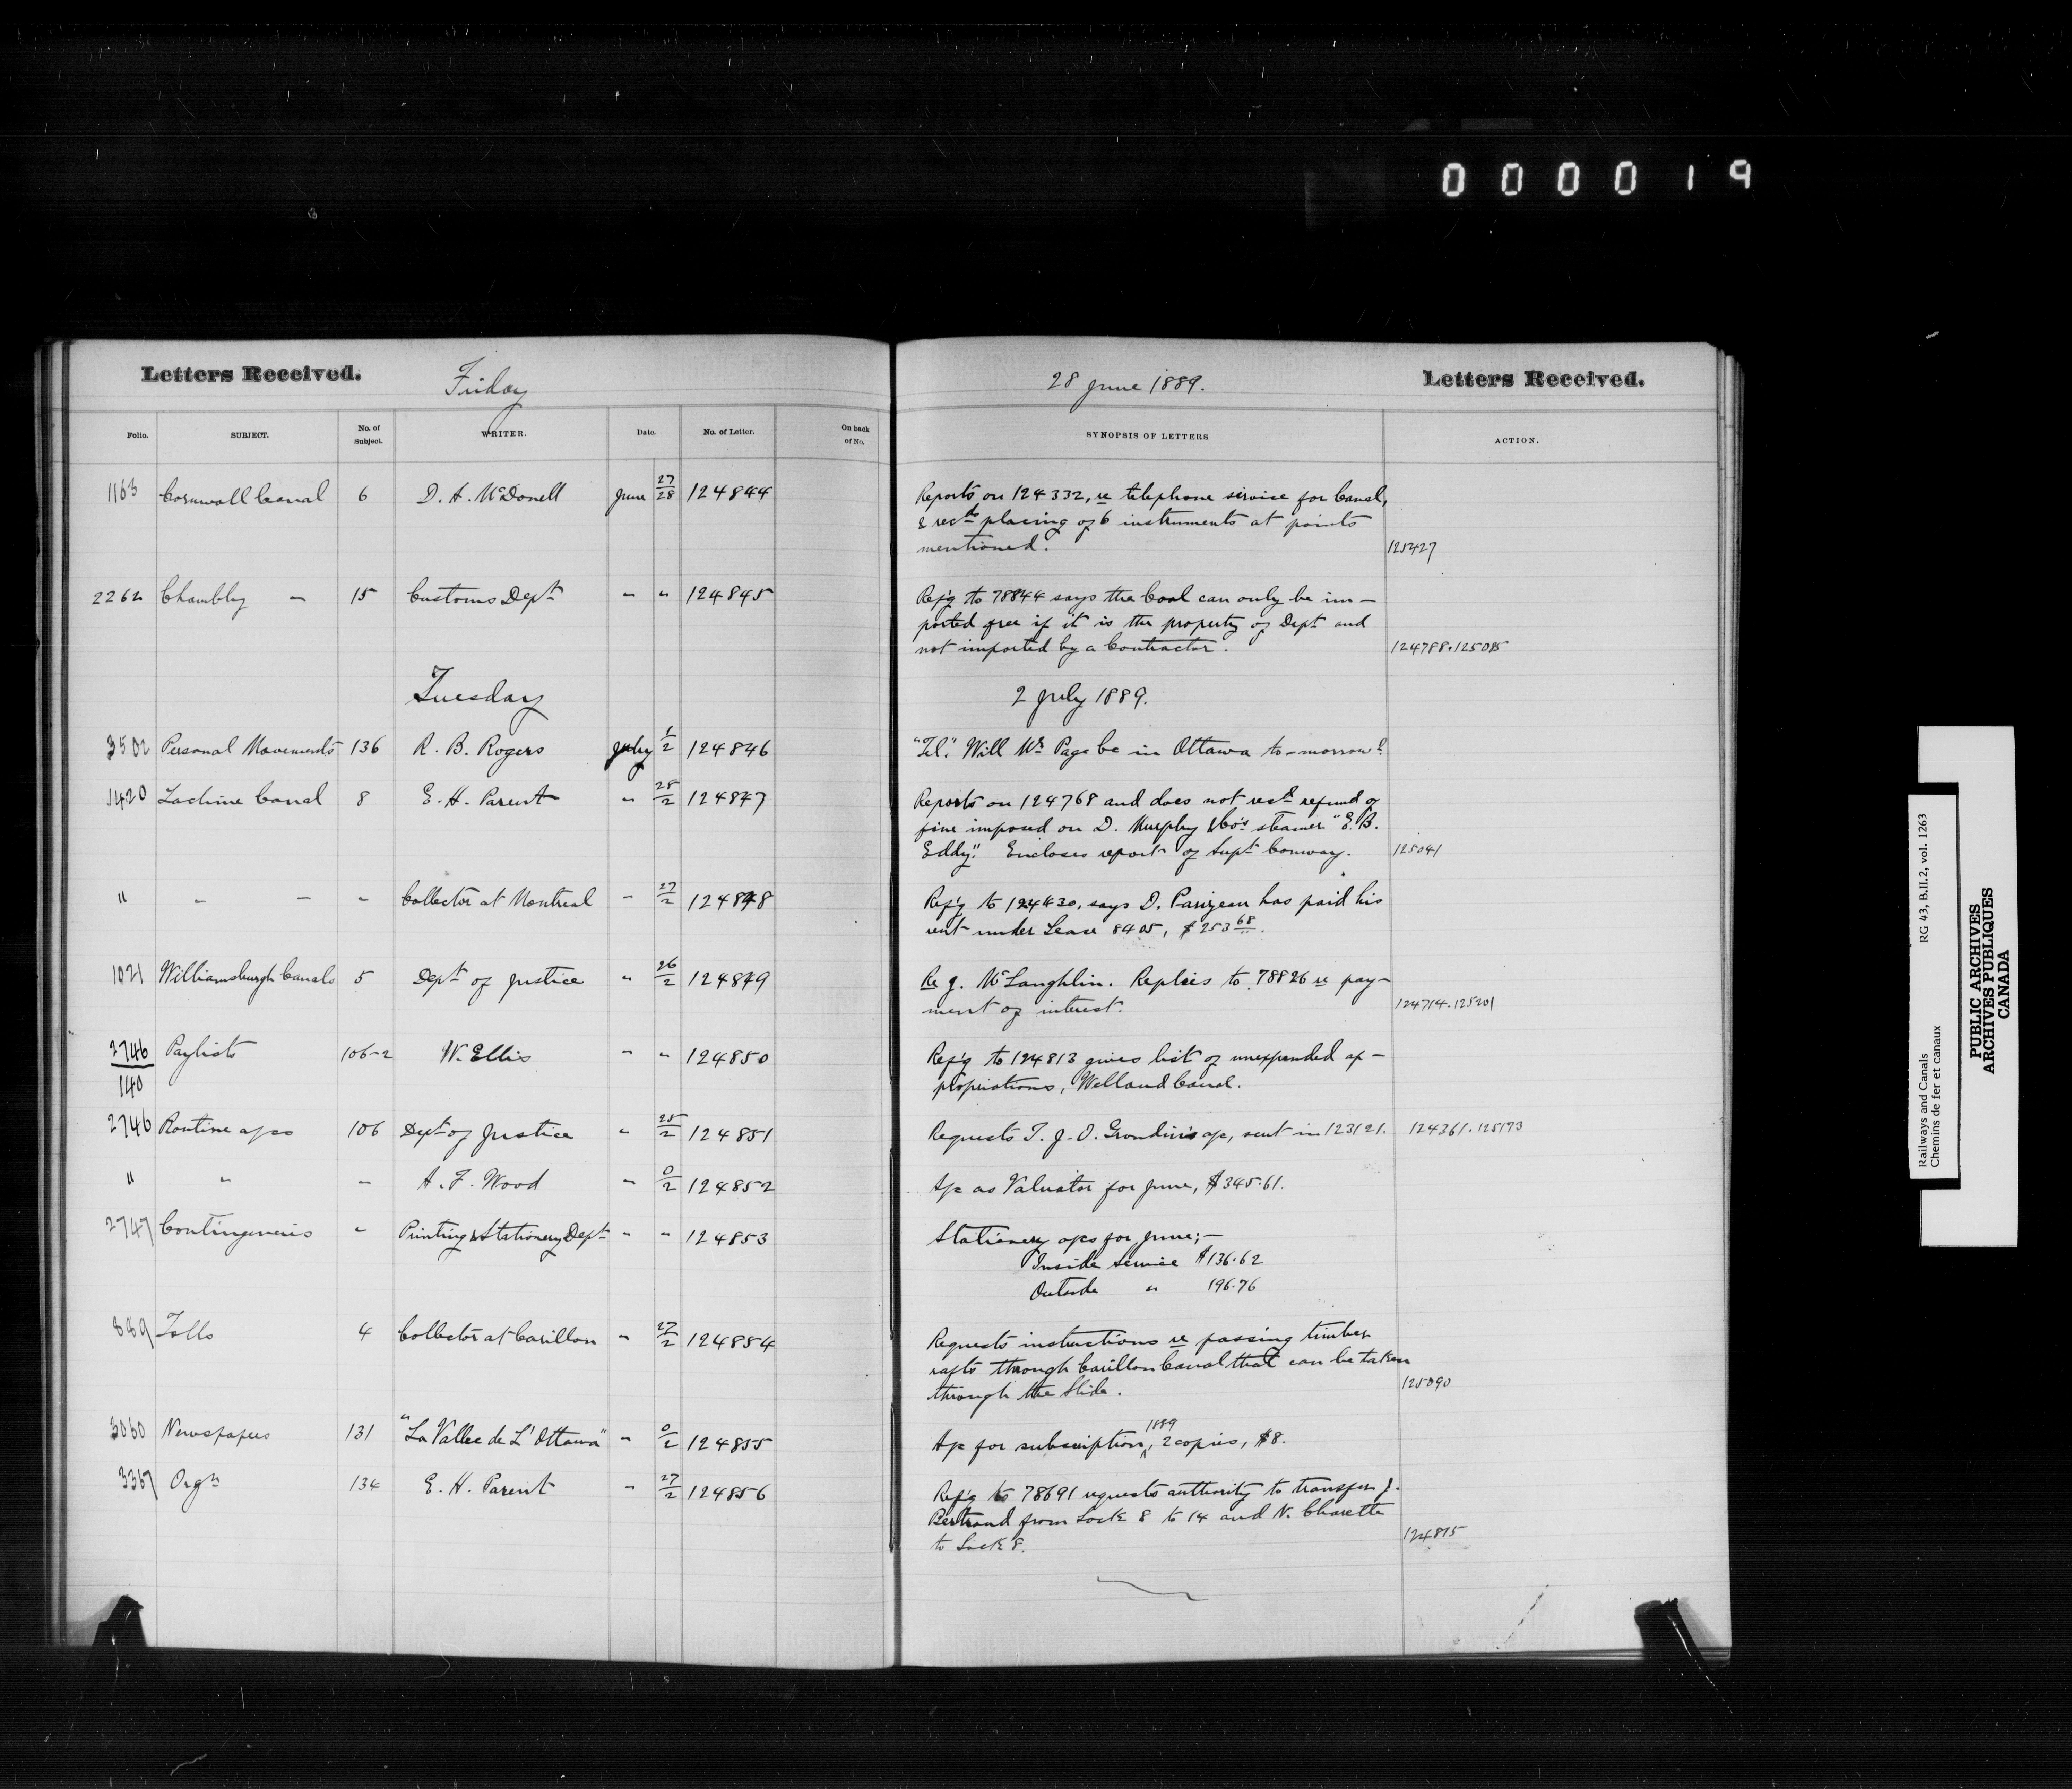 000019
Letters Received. Friday 28 June 1889. Letters Received.
Folio. SUBJECT. No. of Subject. WRITER. Date. No. of Letter. On back of No. SYNOPSIS OF LETTERS ACTION.
1163 Cornwall Canal 6 D. A. McDonell June 27/28 124844 Reports on 124332, re telephone service for Canal,
& recds placing of 6 instruments at points
mentioned. 125427
2262 Chambly " 15 Customs Dept " " 124845 Ref'g to 78844 says the Coal can only be im-
ported free if it is the property of Dept and
not imported by a Contractor. 124788.125085
Tuesday 2 July 1889.
3502 Personal Movements 136 R. B. Rogers July 1/2 124846 "Tel." Will Mr Page be in Ottawa to-morrow?
1420 Lachine Canal 8 E. H. Parent " 28/2 124847 Reports on 124768 and does not recd refund of
fine imposed on D. Murphy & Co's steamer "E. B.
Eddy." Encloses report of Supt Conway. 125041
" " " " Collector at Montreal " 27/2 124848 Ref'g to 124430, says D. Parizeau has paid his
rent under Lease 8405, $253 68.
1021 Williamsburgh Canals 5 Dept of Justice " 26/2 124849 Re J. McLaughlin. Replies to 78826 re pay-
ment of interest. 124714.125201
2746/140 Paylists 106-2 W. Ellis " " 124850 Ref'g to 124813 gives list of unexpended ap-
propriations, Welland Canal.
2746 Routine a/cs 106 Dept of Justice " 25/2 124851 Requests T. J. O. Grondin's a/c, sent in 123121. 124361.125173
" " " A. F. Wood " 0/2 124852 A/c as Valuator for June, $345.61.
2747 Contingencies " Printing & Stationery Dept " " 124853 Stationery a/cs for June;-
Inside service $136.62
Outside " 196.76
889 Tolls 4 Collector at Carillon " 27/2 124854 Requests instructions re passing timber
rafts through Carillon Canal that can be taken
through the Slide. 125090
3060 Newspapers 131 "La Vallee de L'Ottawa" " 0/2 124855 A/c for subscription, 1889 2 copies, $8.
3367 Orgn 134 E. H. Parent " 27/2 124856 Ref'g to 78691 requests authority to transfer J.
Bertrand from Lock 8 to 14 and N. Charette
to Lock 8. 124875
Railways and Canals RG 43, B.II.2, vol. 1263
Chemins de fer et canaux
PUBLIC ARCHIVES
ARCHIVES PUBLIQUES
CANADA